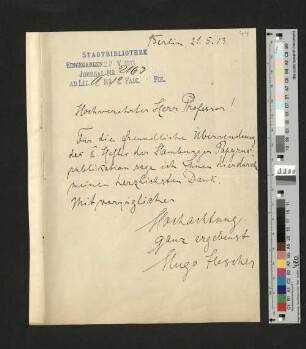 Berlin 21.5.13
44
STADTBIBLIOTHEK
EINGEGANGEN 22 V 1913
JOURNAL-NR. 2163
AD LIT. FASC. FOL.
Hochverehrter Herr Professor!
Für die freundliche Übersendung
des II Heftes der Hamburger Papyrus-
publikation sage ich Ihnen hierdurch
meinen herzlichsten Dank.
Mit vorzüglicher
Hochachtung
ganz ergebenst
Hugo